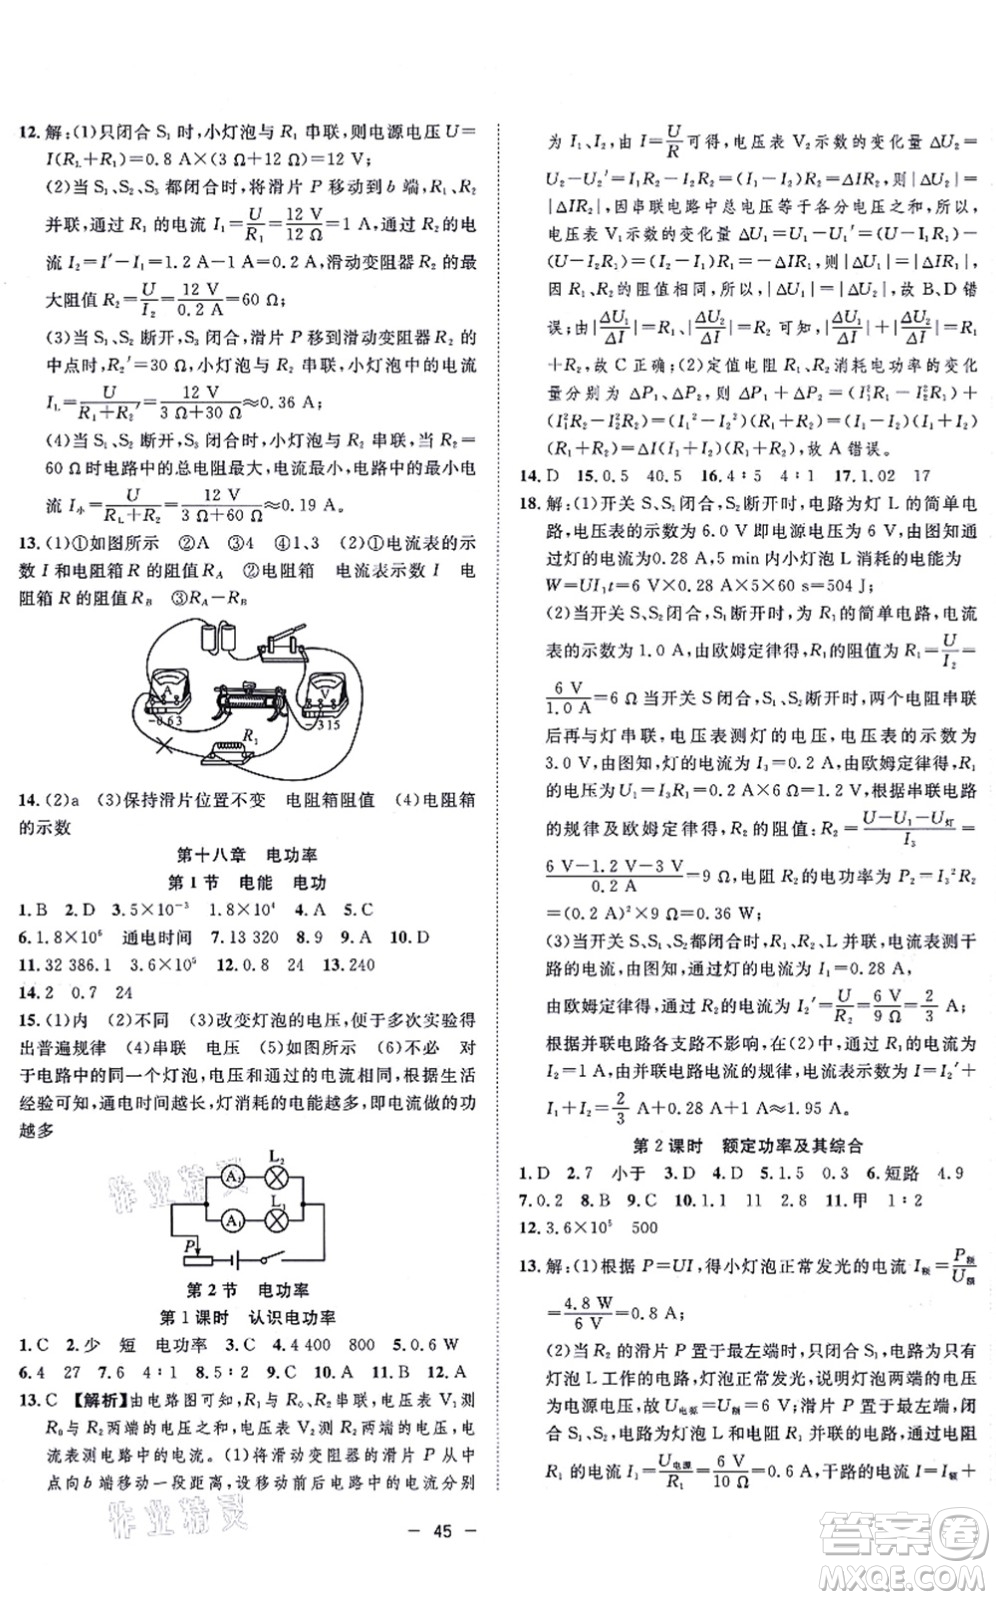 12.解:(1)只闭合 S₁ 时,小灯泡与 R₁ 串联,则电源电压 U=
I(R_L+R₁)=0.8 A×(3 Ω+12 Ω)=12 V;
(2)当 S₁、S₂、S₃ 都闭合时,将滑片 P 移动到 b 端,R₁、R₂
并联,通过 R₁ 的电流 I₁=U/R₁=12 V/12 Ω=1 A,通过 R₂ 的电
流 I₂=I′-I₁=1.2 A-1 A=0.2 A,滑动变阻器 R₂ 的最
大阻值 R₂=U/I₂=12 V/0.2 A=60 Ω;
(3)当 S₁、S₂ 断开,S₃ 闭合,滑片 P 移到滑动变阻器 R₂ 的
中点时,R₂′=30 Ω,小灯泡与 R₂ 串联,通过小灯泡的电流
I_L=U/(R₁+R₂′)=12 V/(3 Ω+30 Ω)≈0.36 A;
(4)当 S₁、S₂ 断开,S₃ 闭合时,小灯泡与 R₂ 串联,当 R₂=
60 Ω时电路中的总电阻最大,电流最小,电路中的最小电
流 I小=U/(R_L+R₂)=12 V/(3 Ω+60 Ω)≈0.19 A。
13.(1)①如图所示 ②A ③4 ④1、3 (2)①电流表的示
数 I 和电阻箱 R 的阻值 R_A ②电阻箱 电流表示数 I 电
阻箱 R 的阻值 R_B ③R_A-R_B
A
V
-0.6 3
-3 15
R₁
14.(2)a (3)保持滑片位置不变 电阻箱阻值 (4)电阻箱
的示数
第十八章 电功率
第 1 节 电能 电功
1.B 2.D 3.5×10⁻³ 1.8×10⁴ 4.A 5.C
6.1.8×10⁶ 通电时间 7.13 320 8.9 9.A 10.D
11.32 386.1 3.6×10⁵ 12.0.8 24 13.240
14.2 0.7 24
15.(1)内 (2)不同 (3)改变灯泡的电压,便于多次实验得
出普遍规律 (4)串联 电压 (5)如图所示 (6)不必 对
于电路中的同一个灯泡,电压和通过的电流相同,根据生活
经验可知,通电时间越长,灯消耗的电能越多,即电流做的功
越多
A₂ L₂
A₁ L₁
P
第 2 节 电功率
第 1 课时 认识电功率
1.C 2.少 短 电功率 3.C 4.4 400 800 5.0.6 W
6.4 27 7.6 4∶1 8.5∶2 9.C 10.D 11.B 12.A
13.C 【解析】由电路图可知,R₁ 与 R₀、R₂ 串联,电压表 V₁ 测
R₀ 与 R₂ 两端的电压之和,电压表 V₂ 测 R₂ 两端的电压,电
流表测电路中的电流。(1)将滑动变阻器的滑片 P 从中
点向 b 端移动一段距离,设移动前后电路中的电流分别
为 I₁、I₂,由 I=U/R 可得,电压表 V₂ 示数的变化量 ΔU₂=
U₂-U₂′=I₁R₂-I₂R₂=(I₁-I₂)R₂=ΔIR₂,则|ΔU₂|=
|ΔIR₂|,因串联电路中总电压等于各分电压之和,所以,
电压表 V₁ 示数的变化量 ΔU₁=U₁-U₁′=(U-I₁R₁)
-(U-I₂R₁)=(I₂-I₁)R₁=-ΔIR₁,则|ΔU₁|=|ΔIR₁|,
因 R₁、R₂ 的阻值相同,所以,|ΔU₁|=|ΔU₂|,故 B、D 错
误;由|ΔU₁/ΔI|=R₁,|ΔU₂/ΔI|=R₂ 可知,|ΔU₁/ΔI|+|ΔU₂/ΔI|=R₁
+R₂,故 C 正确;(2)定值电阻 R₁、R₂ 消耗电功率的变化
量分别为 ΔP₁、ΔP₂,则 ΔP₁+ΔP₂=(I₁²R₁-I₂²R₁)+
(I₁²R₂-I₂²R₂)=(I₁²-I₂²)(R₁+R₂)=(I₁+I₂)(I₁-I₂)
(R₁+R₂)=ΔI(I₁+I₂)(R₁+R₂),故 A 错误。
14.D 15.0.5 40.5 16.4∶5 4∶1 17.1.02 17
18.解:(1)开关 S、S₁ 闭合,S₂ 断开时,电路为灯 L 的简单电
路,电压表的示数为 6.0 V 即电源电压为 6 V,由图知通
过灯的电流为0.28 A,5 min 内小灯泡 L 消耗的电能为
W=UI₁t=6 V×0.28 A×5×60 s=504 J;
(2)当开关 S、S₂ 闭合,S₁ 断开时,为 R₁ 的简单电路,电流
表的示数为 1.0 A,由欧姆定律得,R₁ 的阻值为 R₁=U/I₂=
6 V/1.0 A=6 Ω 当开关 S 闭合,S₁、S₂ 断开时,两个电阻串联
后再与灯串联,电压表测灯的电压,由图知,电压表示数为
3.0 V,灯的电流为 I₃=0.2 A,由欧姆定律可知,R₁ 的电
压为 U₁=I₃R₁=0.2 A×6 Ω=1.2 V,根据串联电路
的规律及欧姆定律得,R₂ 的阻值:R₂=(U-U₁-U灯)/I₃=
(6 V-1.2 V-3 V)/0.2 A=9 Ω,电阻 R₂ 的电功率为 P₂=I₃²R₂
=(0.2 A)²×9 Ω=0.36 W;
(3)当开关 S、S₁、S₂ 闭合时,R₁、R₂、L 并联,电流表测干
路的电流,由图知,通过灯的电流为 I₁=0.28 A,
由欧姆定律得,通过 R₂ 的电流为 I₂′=U/R₂=6 V/9 Ω=2/3 A,
根据并联电路各支路不影响,在(2)中,通过 R₁ 的电流为
1 A,由并联电路电流的规律,电流表示数为 I=I₂′+
I₁+I₂=2/3 A+0.28 A+1 A≈1.95 A。
第 2 课时 额定功率及其综合
1.D 2.7 小于 3.D 4.D 5.1.5 0.3 6.短路 4.9
7.0.2 8.B 9.C 10.1.1 11 2.8 11.甲 1∶2
12.3.6×10⁵ 500
13.解:(1)根据 P=UI,得小灯泡正常发光的电流 I额=P额/U额=
4.8 W/6 V=0.8 A;
(2)当 R₂ 的滑片 P 置于最左端时,闭合 S₁,电路为只有
灯泡 L 工作的电路,灯泡正常发光,又灯泡两端的电压
为电源电压,故U电源=U额=6 V;当滑片 P 置于最左端,闭
合所有开关时,电路为灯泡 L 和电阻 R₁ 并联,通过电阻
R₁ 的电流 I₁=U电源/R₁=6 V/10 Ω=0.6 A,干路的电流 I=I额+
— 45 —
作业精灵
作业精灵
答案圈
MXQE.COM